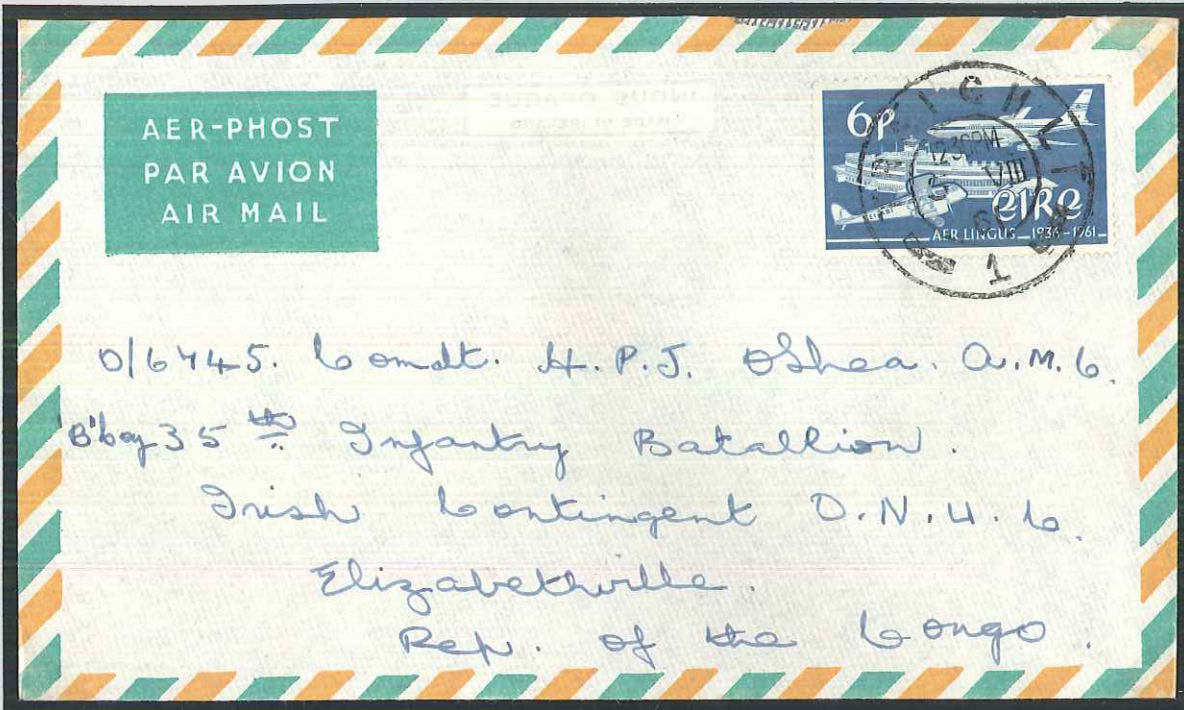 AER-PHOST
PAR AVION
AIR MAIL
6P
12 30PM
VIII
EIRE
AER LINGUS 1936-1961
O/6745. Comdt. H.P.J. OShea. A.M.C.
'B' Coy 35th Infantry Batallion.
Irish Contingent O.N.U.C.
Elizabethville.
Rep. of the Congo.